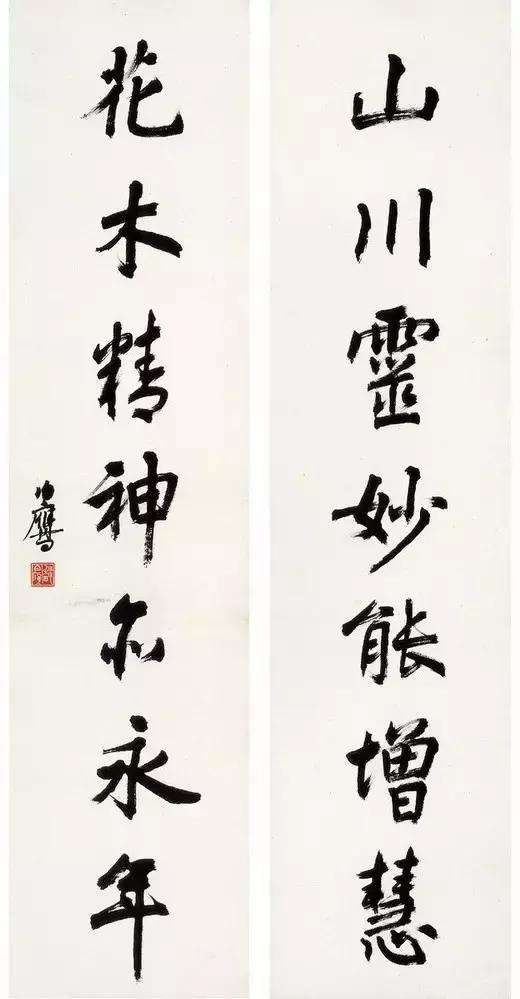 山川靈妙能增慧
花木精神亦永年